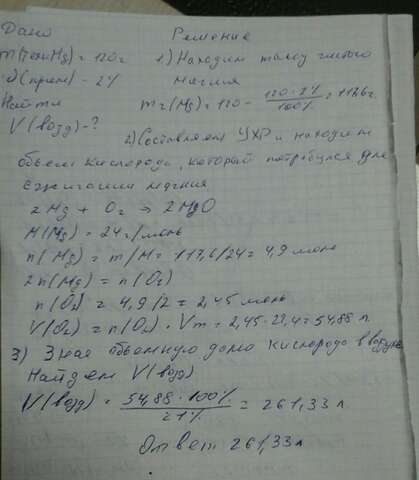 Дано
Решение
m(техMg) = 120г
1.) Находим массу чистого
ω(прим) - 2%
магния
Найти
m2(Mg) = 120 - 120·2%/100% = 117,6г
V(возд) - ?
2) Составляем УХР и находим
объем кислорода, который потребуется для
сжигания магния
2Mg + O2 → 2MgO
M(Mg) = 24г/моль
n(Mg) = m/M = 117,6/24 = 4,9 моль
2n(Mg) = n(O2)
n(O2) = 4,9/2 = 2,45 моль
V(O2) = n(O2) · Vm = 2,45·22,4 = 54,88 л
3) Зная объемную долю кислорода в воздухе
Найдем V(возд)
V(возд) = 54,88·100%/21% = 261,33 л
Ответ 261,33л